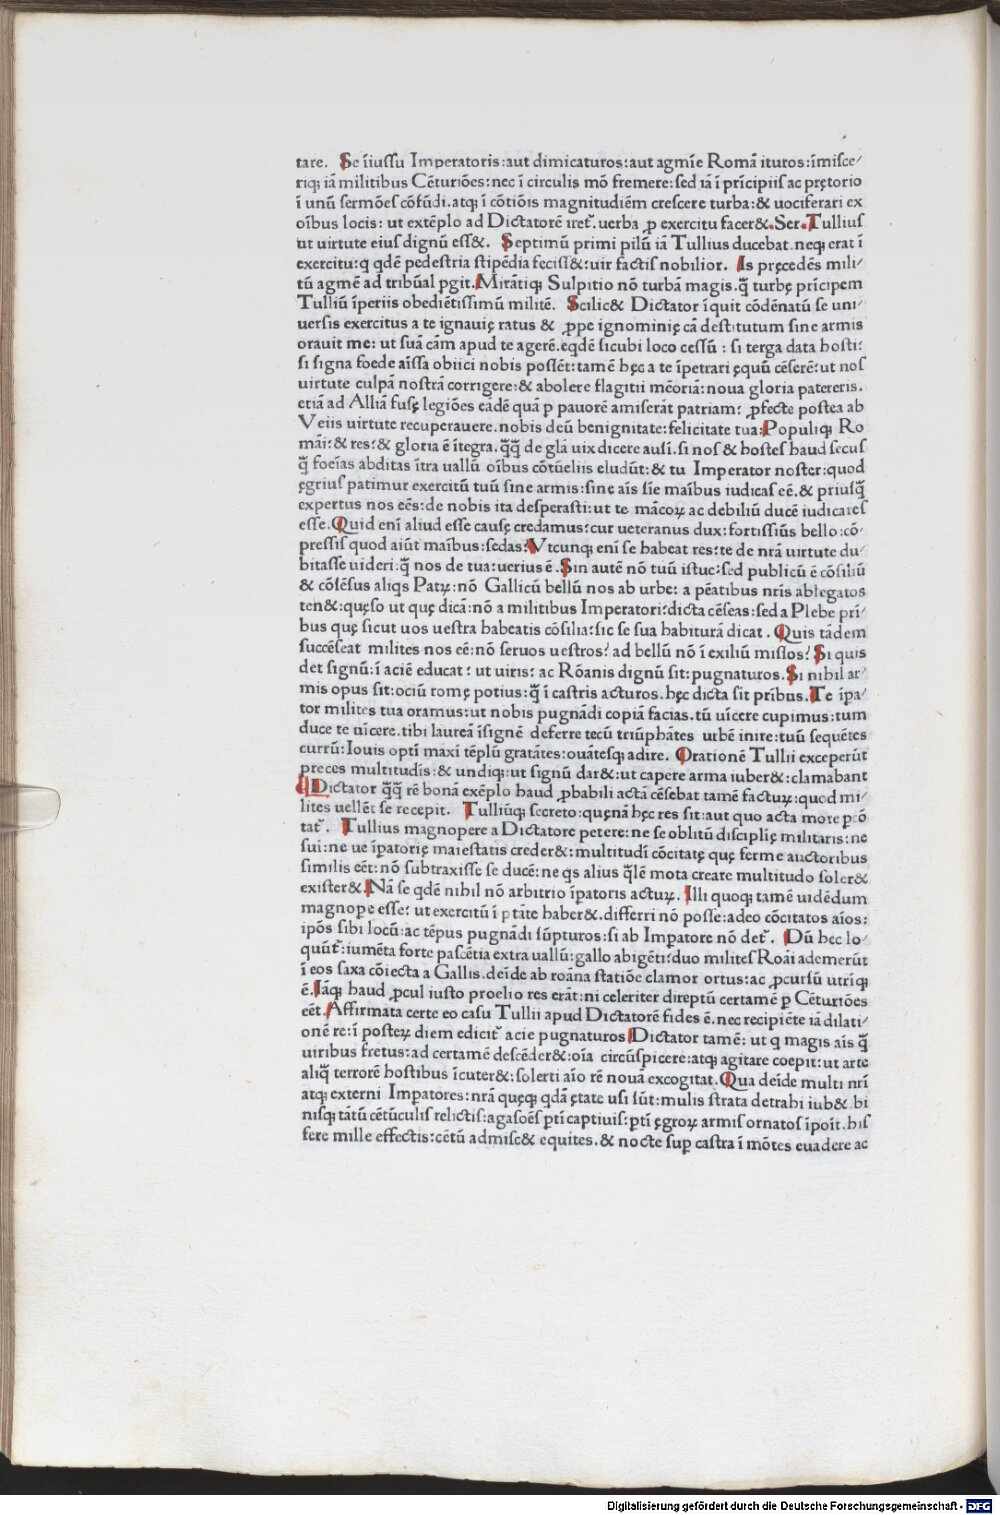 tare. Se ĩiussu Imperatoris:aut dimicaturos:aut agmĩe Romã ituros:ĩmisce⸗
riqꝫ iã militibus Cẽturiões:nec ĩ circulis mõ fremere:sed iã ĩ prĩcipiis ac prętorio
ĩ unũ sermões cõfũdi.atqꝫ ĩ cõtiõis magnitudiẽm crescere turba:& uociferari ex
oĩbus locis: ut extẽplo ad Dictatorẽ iret᷑.uerba ꝓ exercitu facer&.Ser.Tullius
ut uirtute eius dignũ ess&. Septimũ primi pilũ iã Tullius ducebat.neqꝫ erat ĩ
exercitu:q qdẽ pedestria stipẽdia feciss&:uir factis nobilior. Is pręcedẽs mili⸗
tũ agmẽ ad tribũal ꝑgit.Mirãtiqꝫ Sulpitio nõ turbã magis.q̃ turbę prĩcipem
Tulliũ ĩperiis obediẽtissimũ militẽ. Scilic& Dictator ĩquit cõdẽnatũ se uni⸗
uersis exercitus a te ignauię ratus & ꝓpe ignominię cã destitutum sine armis
orauit me: ut suã cãm apud te agerẽ.eqdẽ sicubi loco cessũ : si terga data hosti:
si signa foede aĩssa obiici nobis possẽt:tamẽ hęc a te ĩpetrari ęquũ cẽserẽ:ut nos
uirtute culpã nostrã corrigere:& abolere flagitii mẽoriã:noua gloria patereris.
etiã ad Alliã fusę legiões eadẽ quã ꝑ pauorẽ amiserãt patriam: ꝓfecte postea ab
Veiis uirtute recuperauere.nobis deũ benignitate:felicitate tua:Populiqꝫ Ro
mãi:& res:& gloria ẽ ĩtegra.q̃q̃ de glã uix dicere ausĩ.si nos & hostes haud secus
q̃ foeĩas abditas ĩtra uallũ oĩbus cõtũeliis eludũt:& tu Imperator noster:quod
ęgrius patimur exercitũ tuũ sine armis:sine aĩs sĩe maĩbus iudicas eẽ.& priusq̃
expertus nos eẽs:de nobis ita desperasti:ut te mãcoꝝ ac debiliũ ducẽ iudicares
esse.Quid enĩ aliud esse causę credamus:cur ueteranus dux:fortissiũs bello:cõ⸗
pressis quod aiũt maĩbus:sedas:Vtcunqꝫ enĩ se habeat res:te de nrã uirtute du⸗
bitasse uideri:q̃ nos de tua:uerius ẽ.Sin autẽ nõ tuũ istuc:sed publicũ ẽ cõsiliũ
& cõsẽsus aliqs Patꝝ:nõ Gallicũ bellũ nos ab urbe: a pẽatibus nrĩs ablegatos
ten&:quęso ut quę dicã:nõ a militibus Imperatori:dicta cẽseas:sed a Plebe prĩ⸗
bus quę sicut uos uestra habeatis cõsilia:sic se sua habiturã dicat . Quis tãdem
succẽseat milites nos eẽ:nõ seruos uestros? ad bellũ nõ ĩ exiliũ missos? Si quis
det signũ:ĩ aciẽ educat: ut uiris: ac Rõanis dignũ sit:pugnaturos.Si nihil ar⸗
mis opus sit:ociũ romę potius:q̃ ĩ castris acturos.hęc dicta sit prĩbus.Te ĩpa⸗
tor milites tua oramus:ut nobis pugnãdi copiã facias.tũ uĩcere cupimus:tum
duce te uĩcere.tibi laureã ĩsignẽ deferre tecũ triũphãtes urbẽ inire:tuũ sequẽtes
currũ:Iouis optĩ maxĩ tẽplũ gratãtes:ouãtesqꝫ adire. Orationẽ Tullii exceperũt
preces multitudĩs:& undiqꝫ:ut signũ dar&:ut capere arma iuber&:clamabant
Dictator q̃q̃ rẽ bonã exẽplo haud ꝓbabili actã cẽsebat tamẽ factuꝝ:quod mi⸗
lites uellẽt se recepit. Tulliũqꝫ secreto:quęnã hęc res sit:aut quo acta more ꝑcõ
tat᷑. Tullius magnopere a Dictatore petere:ne se oblitũ disciplĩę militaris:ne
sui:ne ue ĩpatorię maiestatis creder&:multitudĩ cõcitatę quę ferme auctoribus
similis eẽt:nõ subtraxisse se ducẽ:ne qs alius q̃lẽ mota creare multitudo soler&
exister&.Nã se qdẽ nihil nõ arbitrio ĩpatoris actuꝝ.Illi quoqꝫ tamẽ uidẽdum
magnope esse: ut exercitũ ĩ ptãte haber&.differri nõ posse:adeo cõcitatos aĩos:
ipõs sibi locũ:ac tẽpus pugnãdi sũpturos:si ab Impatore nõ det᷑. Dũ hęc lo⸗
qunt᷑:iumẽta forte pascẽtia extra uallũ:gallo abigẽti:duo milites Roãi ademerũt
ĩ eos saxa cõiecta a Gallis.deĩde ab roãna statiõe clamor ortus:ac ꝓcursũ utrĩqꝫ
ẽ.Iãqꝫ haud ꝓcul iusto proelio res erãt:ni celeriter direptũ certamẽ ꝑ Cẽturiões
eẽt.Affirmata certe eo casu Tullii apud Dictatorẽ fides ẽ.nec recipiẽte iã dilati⸗
onẽ re:ĩ posteꝝ diem edicit᷑ acie pugnaturos Dictator tamẽ: ut q magis aĩs q̃
uiribus fretus:ad certamẽ descẽder&:oĩa circũspicere:atqꝫ agitare coepit:ut arte
aliq̃ terrorẽ hostibus ĩcuter&:solerti aĩo rẽ nouã excogitat.Qua deĩde multi nrĩ
atqꝫ externi Impatores:nrã quęqꝫ qdã ętate usi sũt:mulis strata detrahi iub&.bi
nisqꝫ tãtũ cẽtũculis relictis:agasoẽs ptĩ captiuis:ptĩ ęgroꝝ armis ornatos ĩpoĩt.bis
fere mille effectis:cẽtũ admisc& equites.& nocte suꝑ castra ĩ mõtes euadere ac
Digitalisierung gefördert durch die Deutsche Forschungsgemeinschaft - DFG